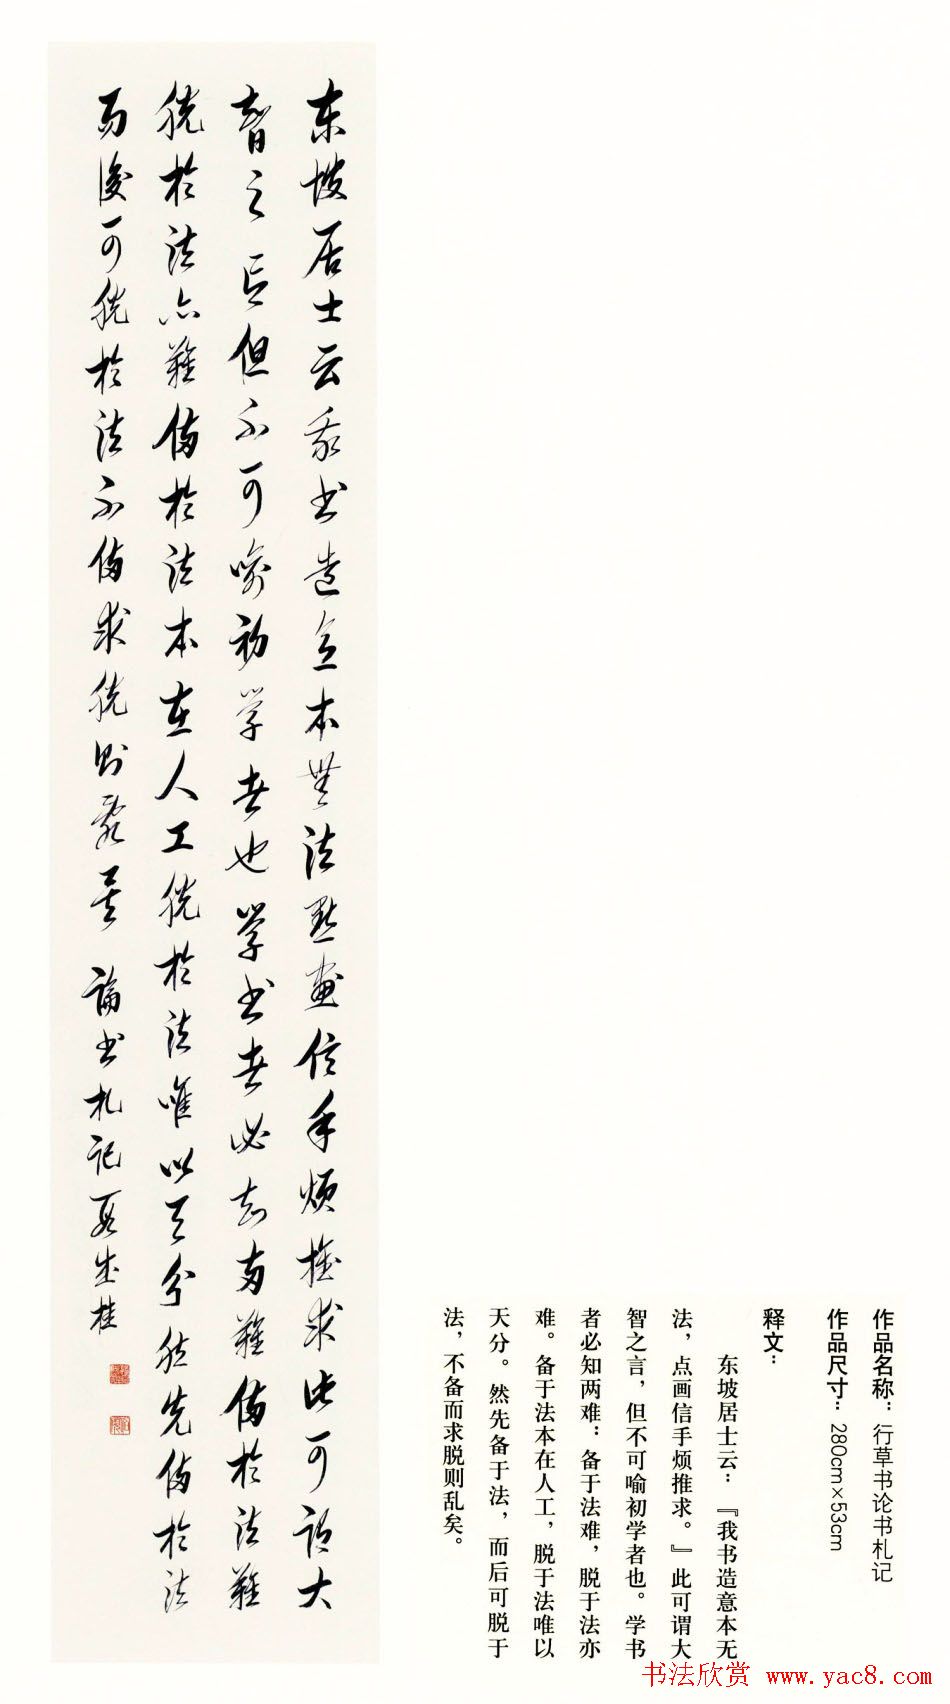 东坡居士云我书造意本無法點畫信手烦推求此可谓大
智之言但不可喻初学者也學书者必知两難備於法難
脱於法亦難備於法本在人工脱於法唯以天分然先備於法
而後可脱於法不備求脱則乱矣 論书札记 段成桂
作品名称：行草书论书札记
作品尺寸：280cm×53cm
释文：
东坡居士云：『我书造意本无
法，点画信手烦推求。』此可谓大
智之言，但不可喻初学者也。学书
者必知两难：备于法难，脱于法亦
难。备于法本在人工，脱于法唯以
天分。然先备于法，而后可脱于
法，不备而求脱则乱矣。
书法欣赏 www.yac8.com